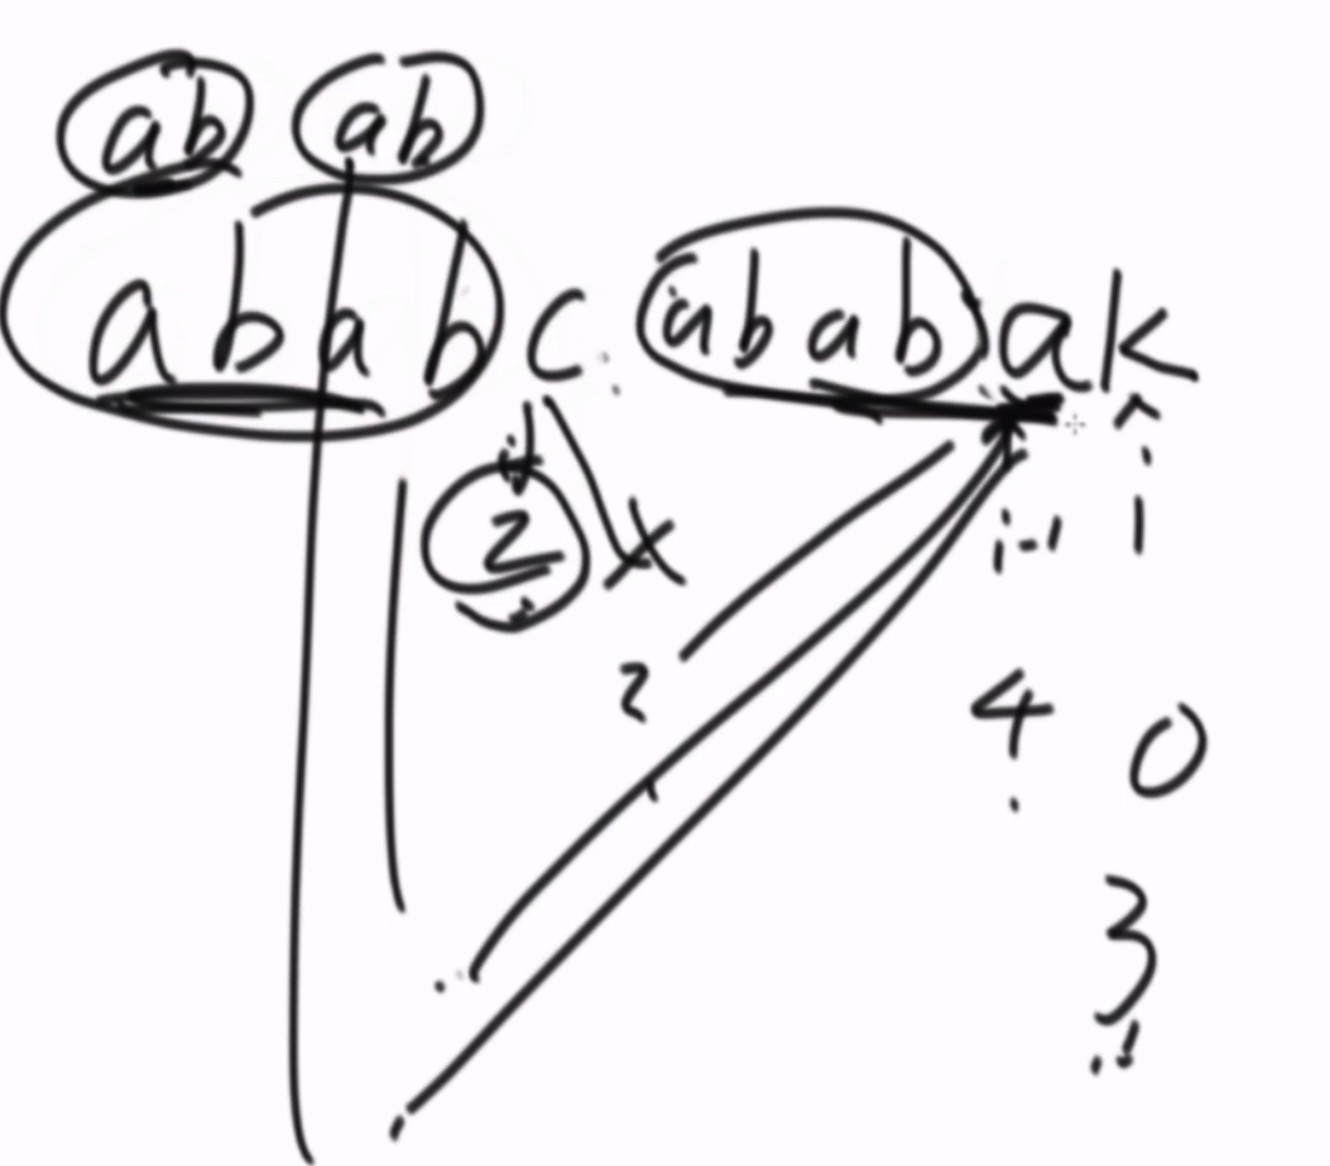 ab ab
ababc ababak
j i
2 i-1
2
4 0
3